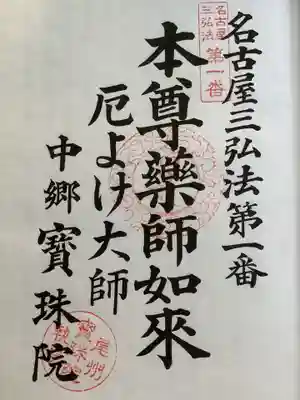 名古屋三弘法第一番
名古屋
三弘法
第一番
本尊藥師如來
厄よけ大師
中郷寶珠院
尾州